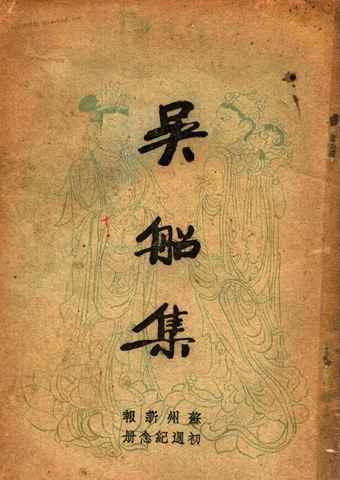 吳船集
蘇州新報
初週紀念册